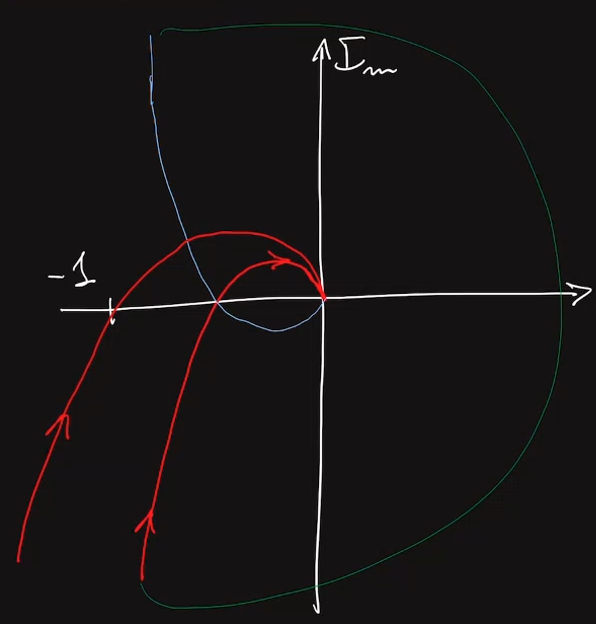 Im
-1